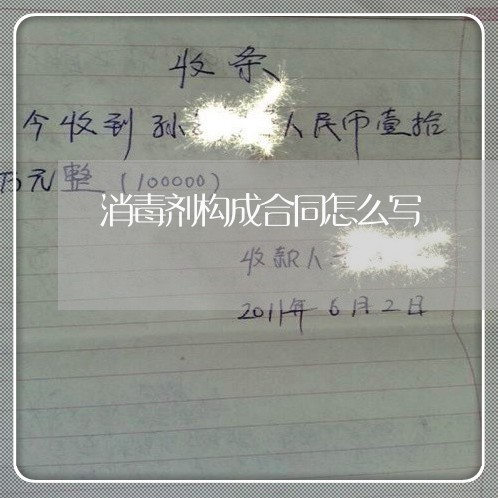 收条
今收到孙 人民币壹拾
万元整（100000）
消毒剂构成合同怎么写
收款人
2011年6月2日